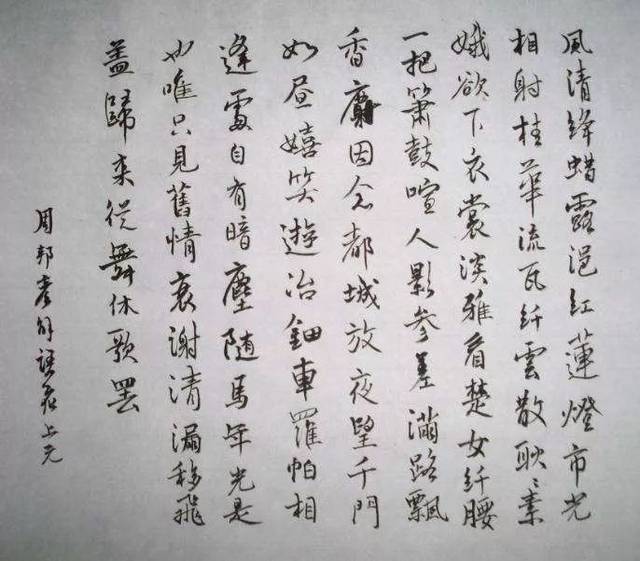 風清絳蜡露浥红蓮燈市光
相射桂華流瓦纤雲散耿〻素
娥欲下衣裳淡雅看楚女纤腰
一把箫鼓喧人影参差滿路飄
香麝因念都城放夜望千門
如昼嬉笑遊冶鈿車羅帕相
逢處自有暗塵随馬年光是
也唯只見舊情衰谢清漏移飛
盖歸来従舞休歌罢
周邦彦解語花上元